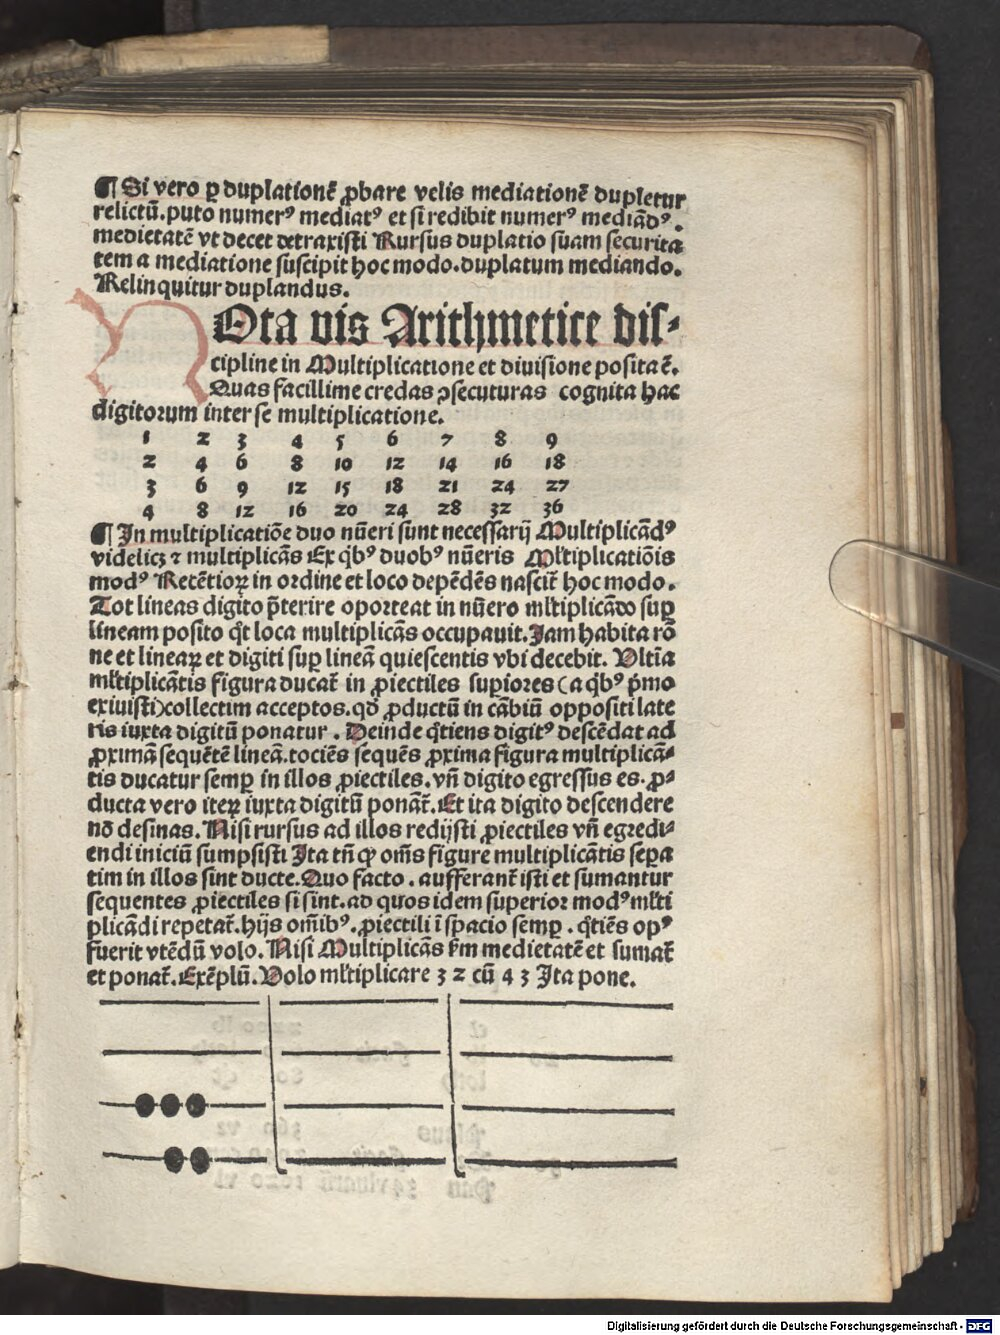 ¶ Si vero ꝑ duplationē ꝓbare velis mediationē dupletur
relictū.puto numerꝰ mediatꝰ et si redibit numerꝰ mediādꝰ.
medietatē vt decet detraxisti Rursus duplatio suam securita
tem a mediatione suscipit hoc modo.duplatum mediando.
Relinquitur duplandus.
NOta vis Arithmetice dis⸗
cipline in Multiplicatione et diuisione posita ē.
Quas facillime credas ↄsecuturas cognita hac
digitorum inter se multiplicatione.
1 2 3 4 5 6 7 8 9
2 4 6 8 10 12 14 16 18
3 6 9 12 15 18 21 24 27
4 8 12 16 20 24 28 32 36
¶ In multiplicatiōe duo nūeri sunt necessarij Multiplicādꝰ
videlicꝫ ⁊ multiplicās Ex qͥbꝰ duobꝰ nūeris Mltiplicatiōis
modꝰ Retētioꝝ in ordine et loco depēdēs nascit̄ hoc modo.
Tot lineas digito p̄terire oporteat in nūero mltiplicādo suꝑ
lineam posito qͦt loca multiplicās occupauit.Jam habita rō
ne et lineaꝝ et digiti suꝑ lineā quiescentis vbi decebit. Vltīa
mltiplicātis figura ducat̄ in ꝓiectiles suꝑiores (a qͥbꝰ pͥmo
exiuisti)collectim acceptos.qd̄ ꝓductū in cābiū oppositi late
ris iuxta digitū ponatur . Deinde qͦtiens digitꝰ descēdat ad
ꝓximā sequētē lineā.tociēs sequēs ꝓxima figura multiplicā⸗
tis ducatur semꝑ in illos ꝓiectiles.vn̄ digito egressus es. ꝓ⸗
ducta vero iteꝝ iuxta digitū ponāt̄.Et ita digito descendere
nō desinas. Nisi rursus ad illos redijsti ꝓiectiles vn̄ egredi⸗
endi iniciū sumpsisti Ita tn̄ ꝙ om̄s figure multiplicātis seꝑa
tim in illos sint ducte.Quo facto . aufferant̄ isti et sumantur
sequentes ꝓiectiles si sint.ad quos idem superior modꝰ mlti
plicādi repetat̄.hijs om̄ibꝰ.ꝓiectili ī spacio semꝑ . qͦtiēs opꝰ
fuerit vtēdū volo. Nisi Multiplicās km̄ medietatē et sumat̄
et ponat̄.Exēplū.Volo mltiplicare 3 2 cū 4 3 Ita pone.
Digitalisierung gefördert durch die Deutsche Forschungsgemeinschaft - DFG